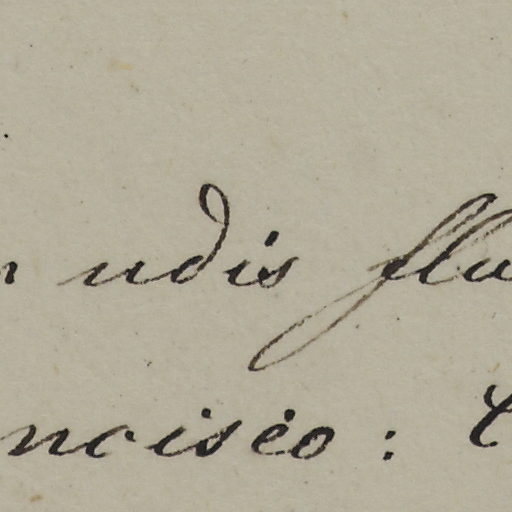 n udis flu
ncisco: